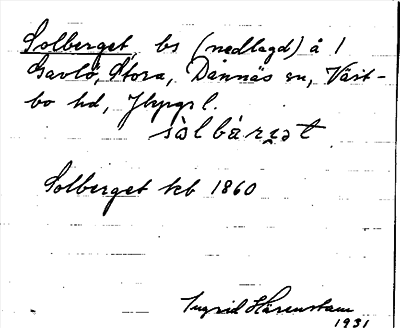 Solberget, bs (nedlagd) å 1
Gavlö, Stora, Dannäs sn, Väst-
bo hd, Jkpgs l.
sòlbárjət
Solberget kb 1860
Ingrid Härenstam
1931